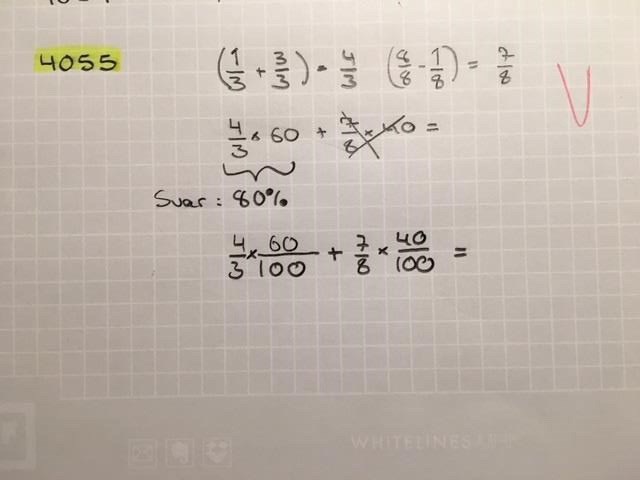 4055 (1/3 + 3/3) = 4/3 (8/8 - 1/8) = 7/8
4/3 × 60 + 7/8 × 40 =
Svar: 80%
4/3 × 60/100 + 7/8 × 40/100 =
WHITELINES